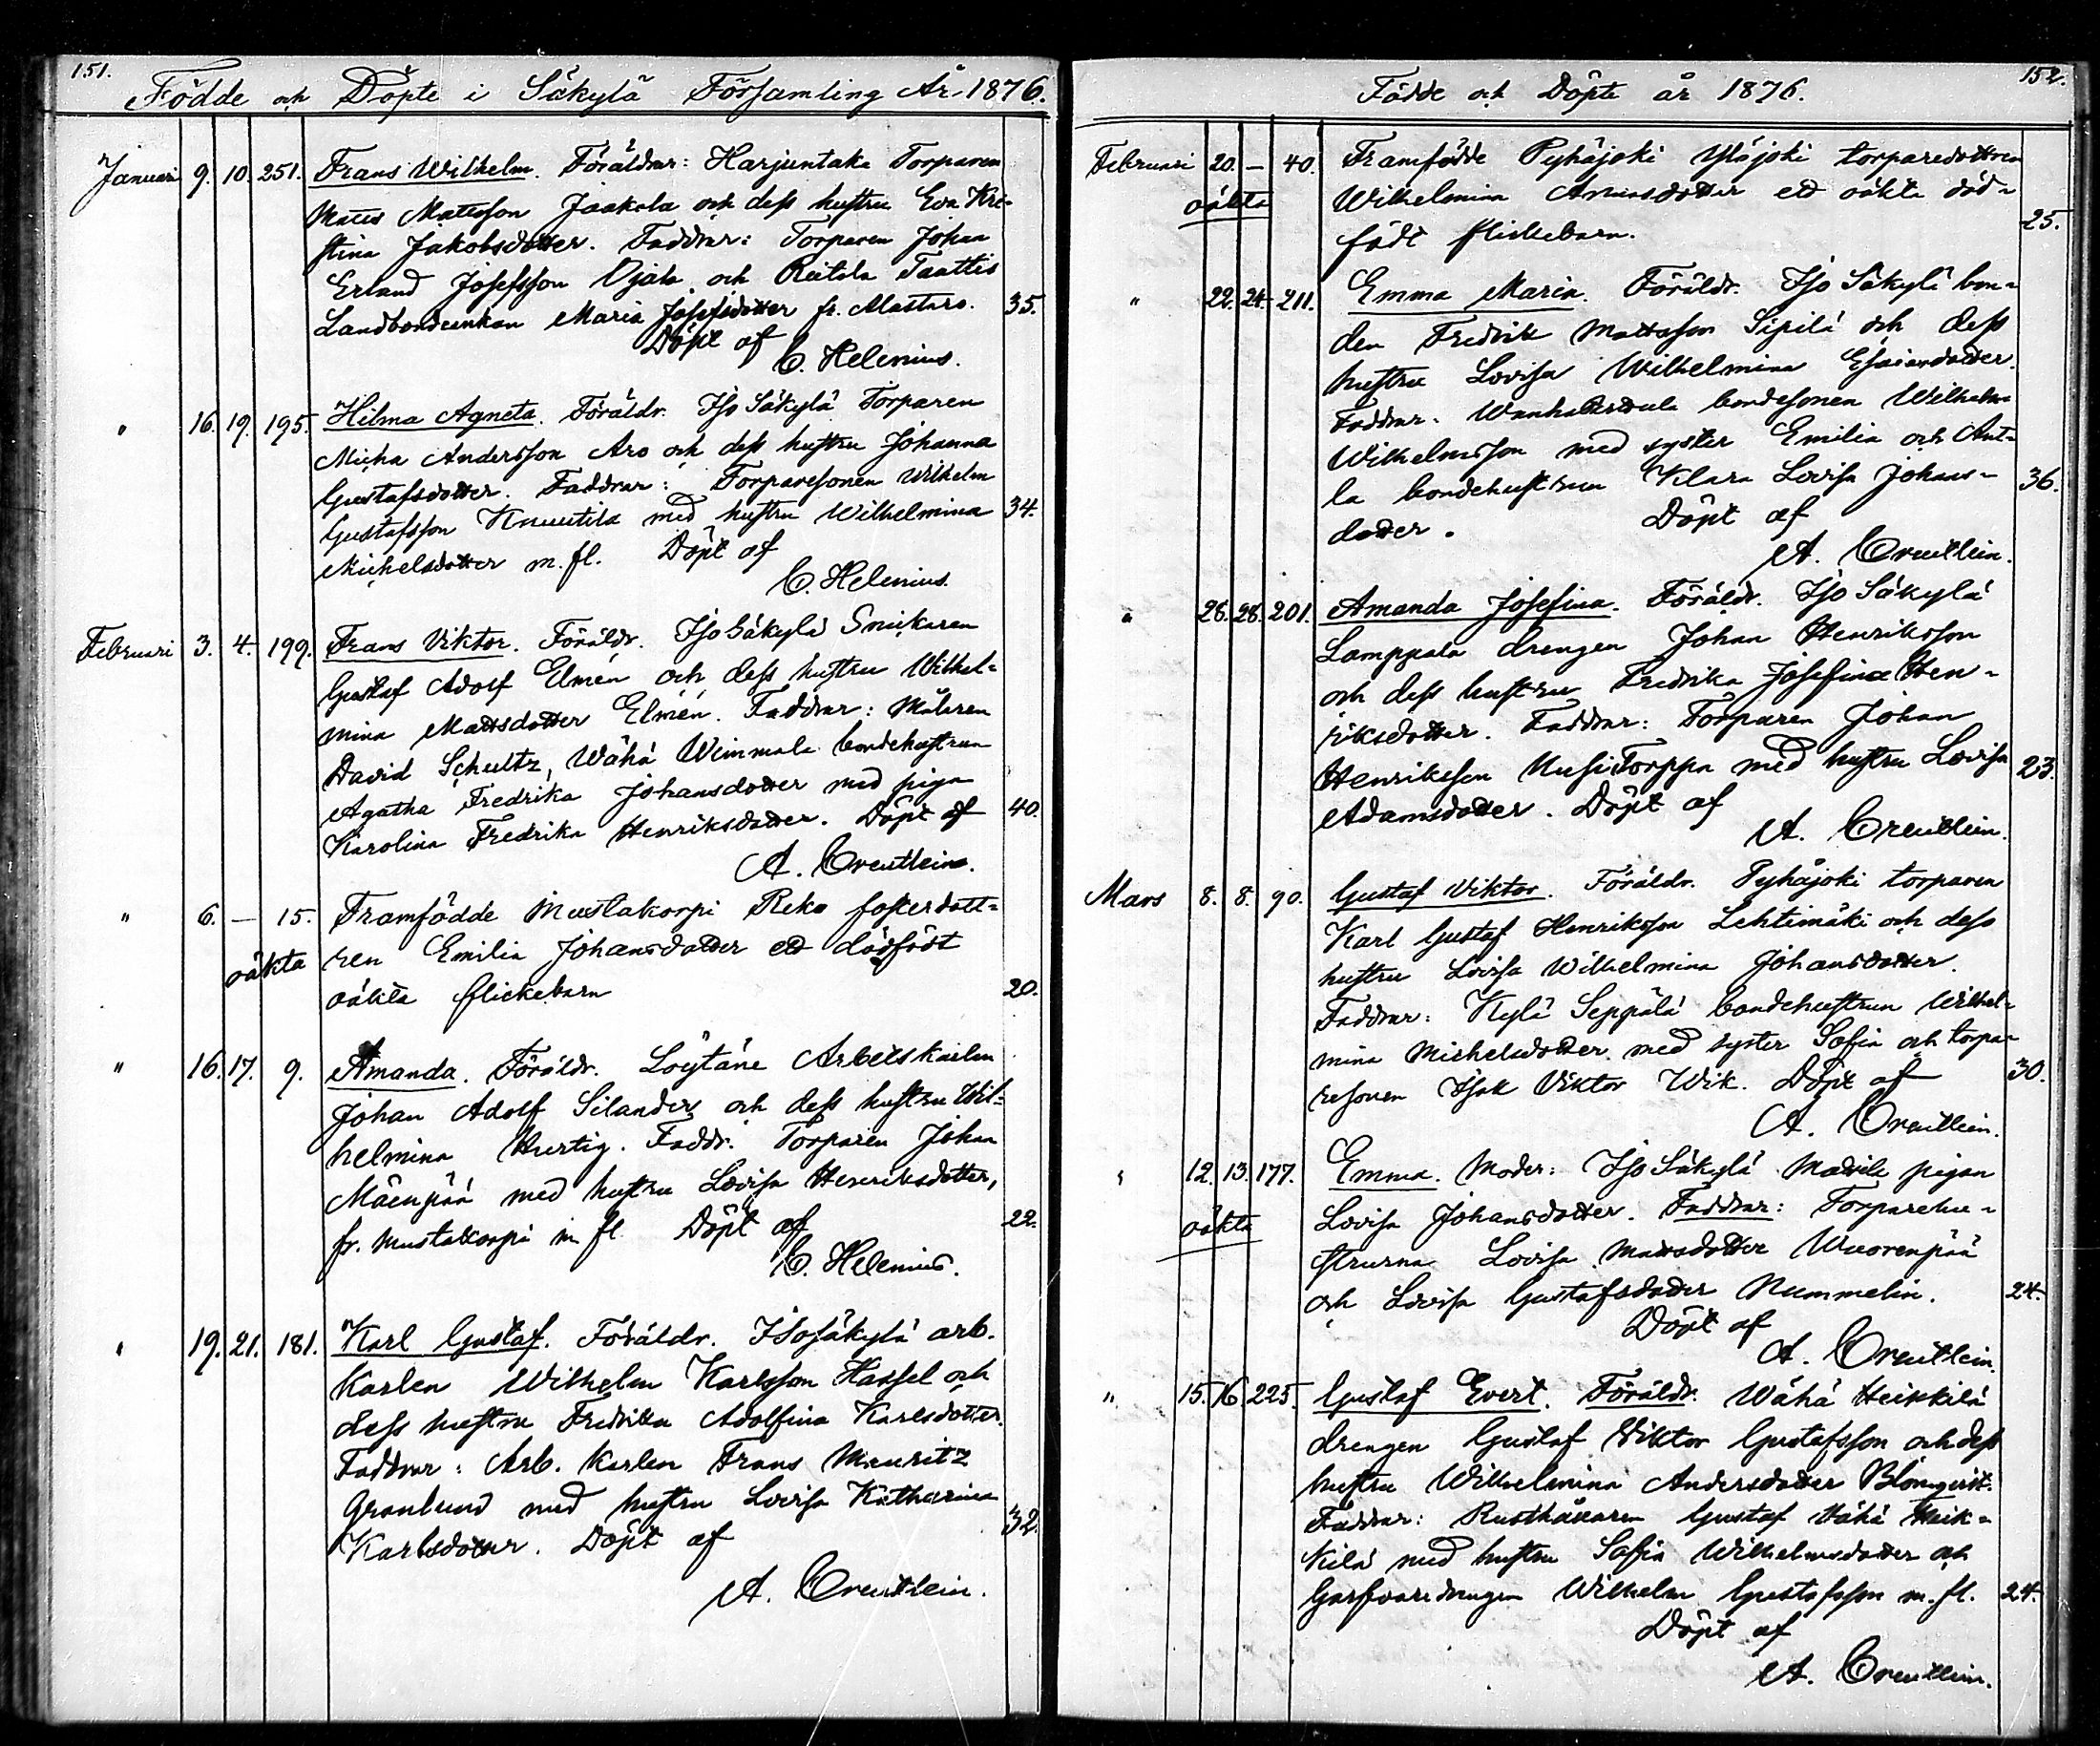 151.
Födde och Döpte i Säkylä Församling År 1876.
Januari 9. 10. 251. Frans Wilhelm. Föräldrar: Harjuntaka Torparen
Matts Mattsson Jaakola och dess hustru Eva Kri-
stina Jakobsdotter. Faddrar: Torparen Johan
Erland Josefsson Ojala och Raitala Taattis
Landbondeenkan Maria Josefsdotter fr. Mastaro. 35.
Döpt af
C. Helenius.
" 16. 19. 195. Hilma Agneta. Föräldr. Iso Säkylä Torparen
Micha Andersson Aro och dess hustru Johanna
Gustafsdotter. Faddrar: Torparesonen Wilhelm
Gustafsson Knuutila med hustru Wilhelmina 34.
Michelsdotter m. fl. Döpt af
C. Helenius.
Februari 3. 4. 199. Frans Viktor. Föräldr. Iso Säkylä Snickaren
Gustaf Adolf Elmén och dess hustru Wilhel-
mina Mattsdotter Elmén. Faddrar: Målaren
David Schultz, Wähä Wimmala bondehustrun
Agatha Fredrika Johansdotter med pigan
Karolina Fredrika Henriksdotter. Döpt af 40.
A. Creutlein.
" 6. — 15. Framfödde Mustakorpi Reko fosterdott-
oäkta ren Emilia Johansdotter ett dödfödt
oäkta flickebarn 20.
" 16. 17. 9. Amanda. Föräldr. Löytäne Arbetskarlen
Johan Adolf Silander och dess hustru Wil-
helmina Hurtig. Faddr. Torparen Johan
Mäenpää med hustru Lovisa Henriksdotter,
fr. Mustakorpi m fl. Döpt af 22.
C. Helenius.
" 19. 21. 181. Karl Gustaf. Föräldr. Isosäkylä arb.
Karlen Wilhelm Karlsson Hassel och
dess hustru Fredrika Adolfina Karlsdotter.
Faddrar: Arb. karlen Frans Mauritz
Granlund med hustru Lovisa Katharina
Karlsdotter. Döpt af 32.
A. Creutlein.
152.
Födde och Döpte år 1876.
Februari 20. — 40. Framfödde Pyhäjoki Yläjoki torparedottren
oäkta Wilhelmina Amasdotter ett oäkta död-
födt flickebarn. 25.
" 22. 24. 211. Emma Maria. Föräldr. Iso Säkylä bon-
den Fredrik Mattsson Sipilä och dess
hustru Lovisa Wilhelmina Esaiasdotter.
Faddrar: bondesonen Wilhelm
Wilhelmsson med syster Emilia och Ant-
la bondehustrun Klara Lovisa Johans- 36.
dotter. Döpt af
A. Creutlein.
" 26. 28. 201. Amanda Josefina. Föräldr. Iso Säkylä
Lamppala drengen Johan Henriksson
och dess hustru Fredrika Josefina Hen-
riksdotter. Faddrar: Torparen Johan
Henriksson Uusitorppa med hustru Lovisa 23.
Adamsdotter. Döpt af
A. Creutlein.
Mars 8. 8. 90. Gustaf Viktor. Föräldr. Pyhäjoki torparen
Karl Gustaf Henriksson Lehtimäki och dess
hustru Lovisa Wilhelmina Johansdotter.
Faddrar: Kylä Seppälä bondehustrun Wilhel-
mina Michelsdotter med syster Sofia och torpa-
resonen Isak Viktor Wik. Döpt af 30.
A. Creutlein.
" 12. 13. 177. Emma. Moder: Iso Säkylä Mattila pigan
oäkta Lovisa Johansdotter. Faddrar: Torparehu-
strurna Lovisa Mattsdotter Wuorenpää
och Lovisa Gustafsdotter Nummelin. 24.
Döpt af
A. Creutlein.
" 15. 16. 225. Gustaf Evert. Föräldr. Wähä Heikkilä
drengen Gustaf Viktor Gustafsson och dess
hustru Wilhelmina Andersdotter Blomqvist.
Faddrar: Rusthållaren Gustaf Wähä Heik-
kilä med hustru Sofia Wilhelmsdotter och
Garfvaredrengen Wilhelm Gustafsson m. fl. 24.
Döpt af
A. Creutlein.